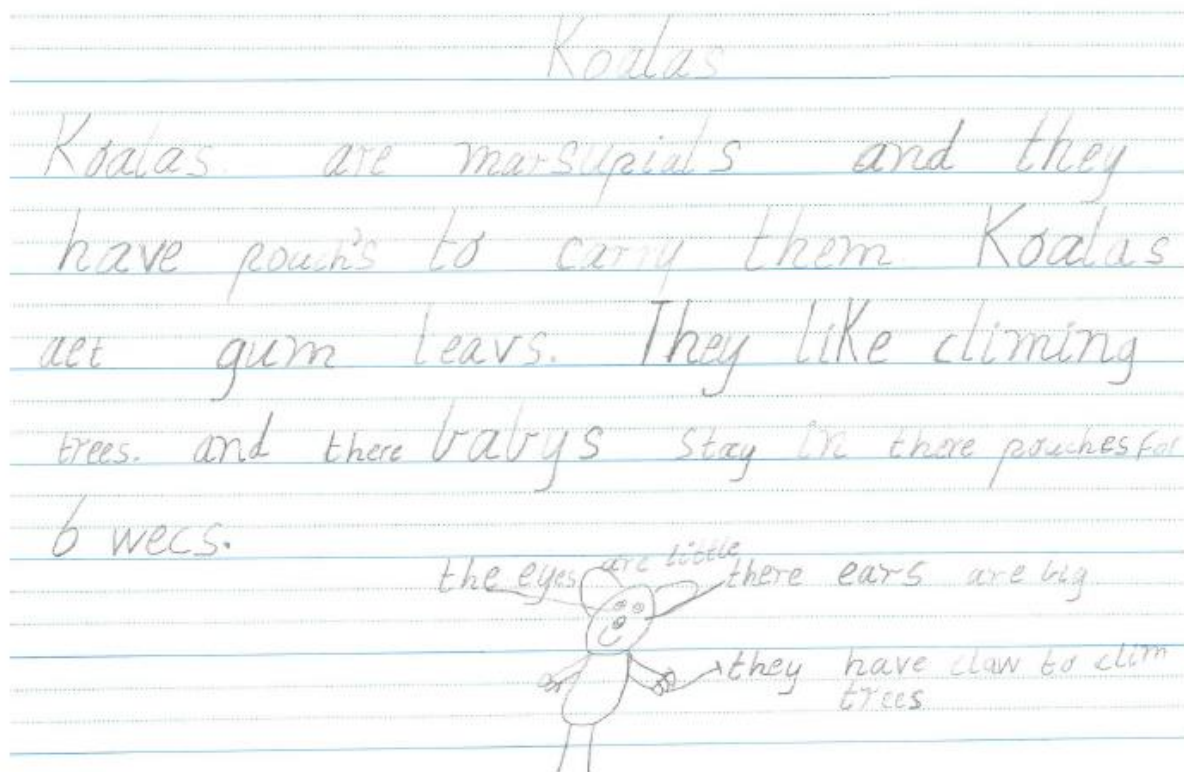 Koalas
Koalas are marsupials and they
have pouch's to carry them. Koalas
aet gum leavs. They like climing
trees. and there babys stay in there pouches for
6 wecs.
the eyes are little
there ears are big
they have claw to clim
trees